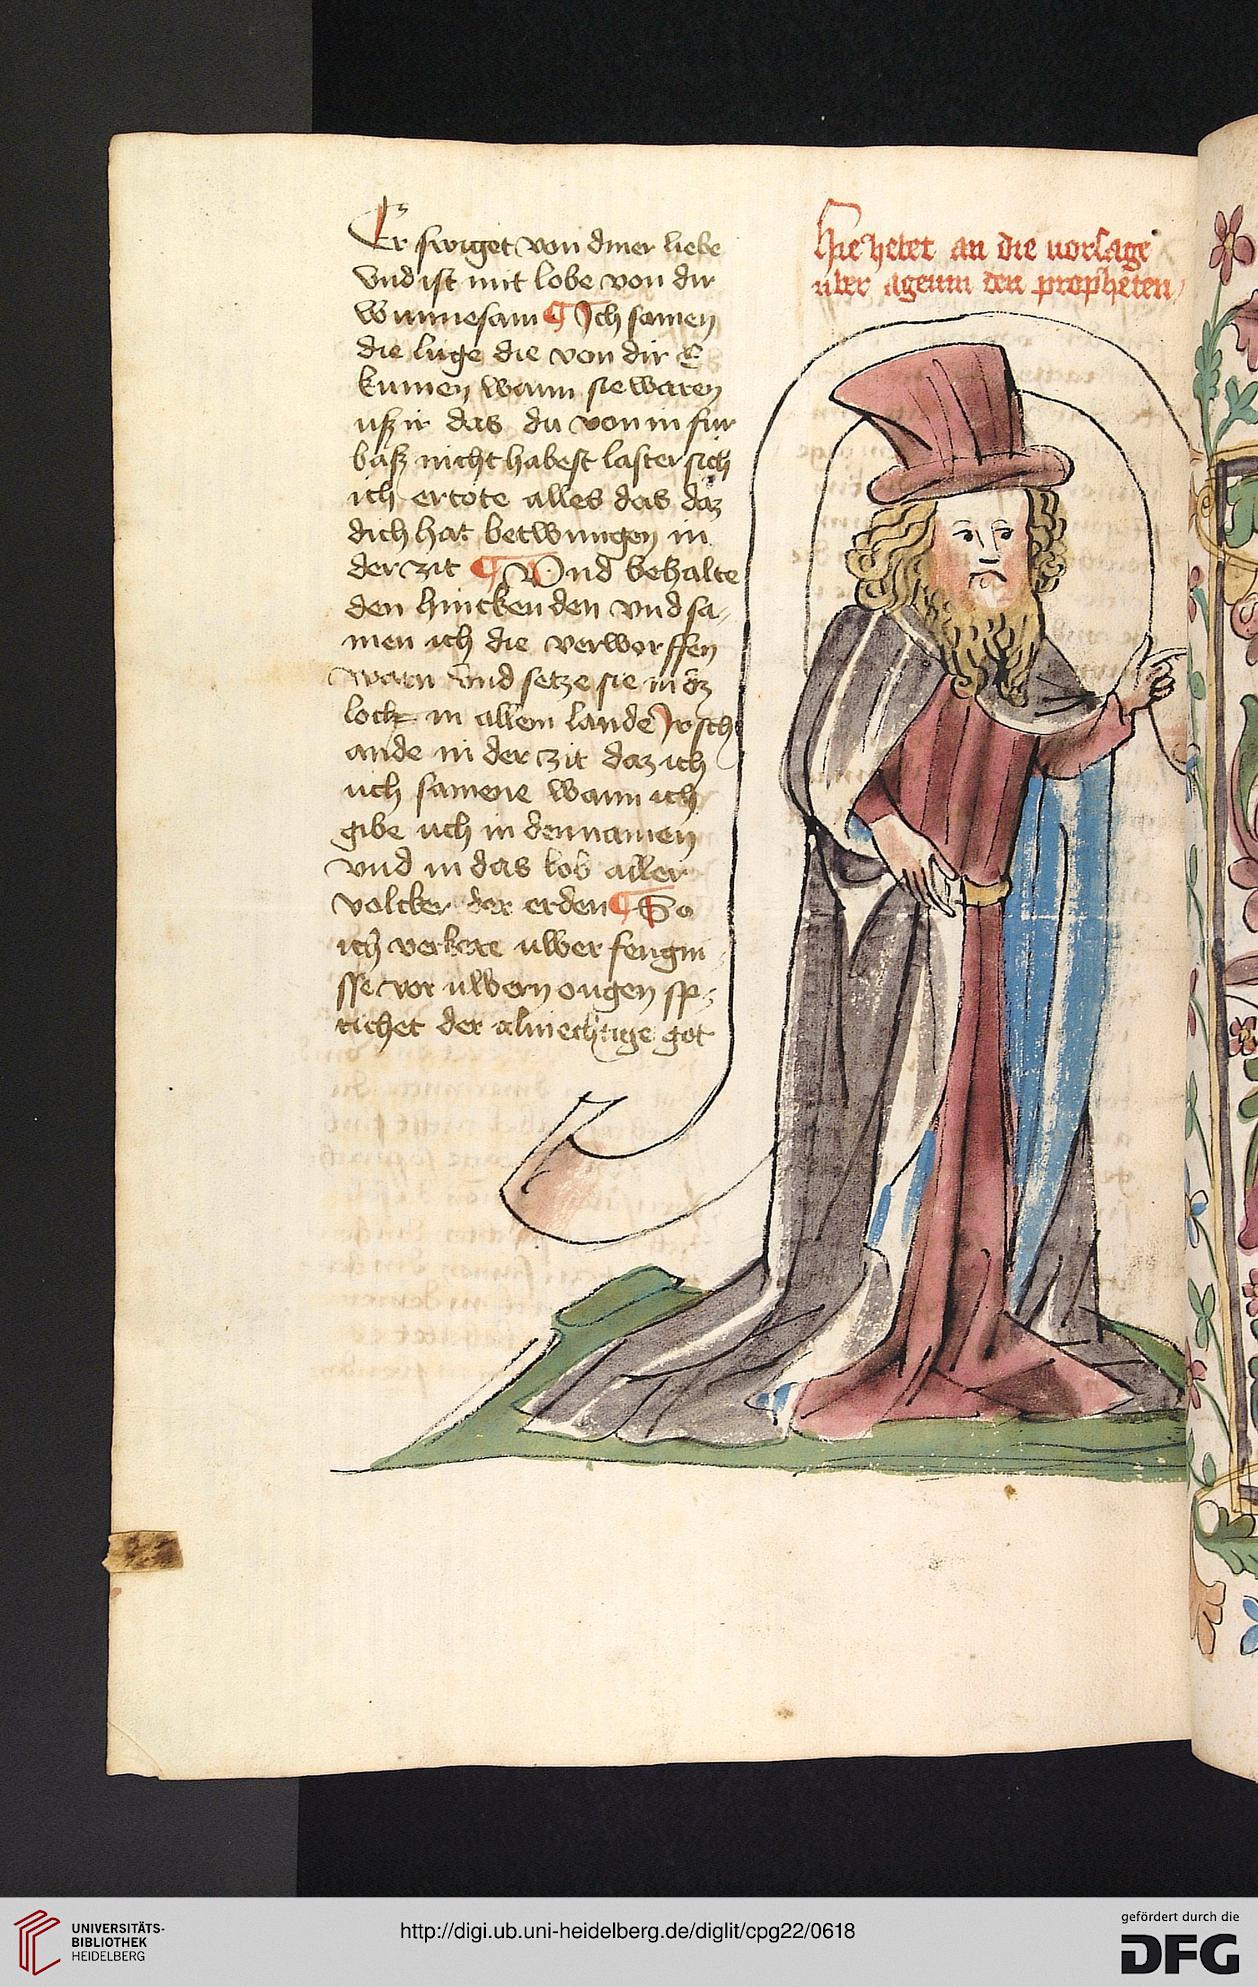 Er swiget von diner liebe
Vnd ist mit lobe von dir
Wunnesam Ich samen
die luge die von dir E
kumen wann sie waren
usz ir das du von in fur
basz nicht habest laster sich
ich ertote alles das daz
dich hat betwungen in
der zit Vnd behalte
den hinckenden vnd sa-
men ich die verworffen
warn vnd setze sie in dz
lock in allem lande Ir sch
ande in der zit daz ich
uch samene wann ich
gibe uch in den namen
vnd in das lob aller
volcker der erden So
ich verkere uwer fengni
sse vor uwern ougen sp-
richet der almechtige got
Hie hebet an die vorsage
uber ageum den propheten
UNIVERSITÄTS-
BIBLIOTHEK
HEIDELBERG
http://digi.ub.uni-heidelberg.de/diglit/cpg22/0618
gefördert durch die
DFG